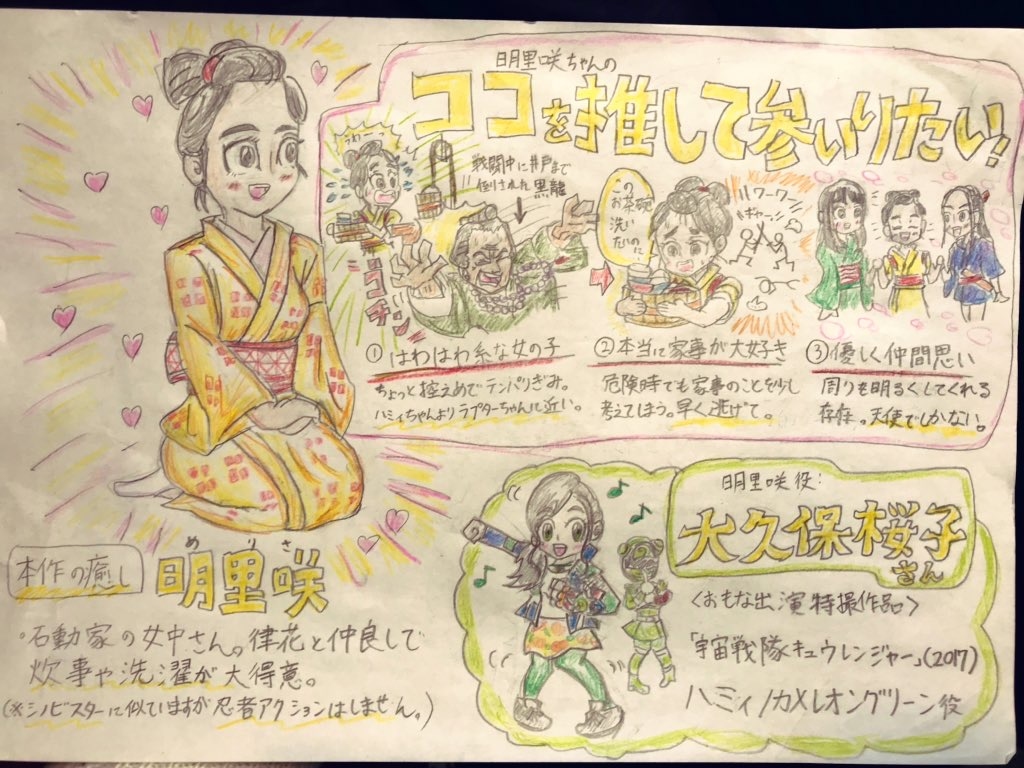 明里咲ちゃんの
ココを推して参りたい!
うわー
戦闘中に井戸まで
倒りされた黒龍
ゴチン
この
お茶碗
洗い
たいのに
ワーワー
ギャー
① はわはわ系な女の子
ちょっと控えめでテンパりぎみ。
ハミィちゃんよりラプターちゃんに近い。
② 本当に家事が大好き
危険時でも家事のことを少し
考えてしまう。早く逃げて。
③ 優しく仲間思い
周りを明るくしてくれる
存在。天使でしかない。
本作の癒し
めりさ
明里咲
石動家の女中さん。律花と仲良しで
炊事や洗濯が大得意。
(※シノビスターに似ていますが忍者アクションはしません。)
明里咲役:
大久保桜子
さん
<おもな出演特撮作品>
「宇宙戦隊キュウレンジャー」(2017)
ハミィ/カメレオングリーン役